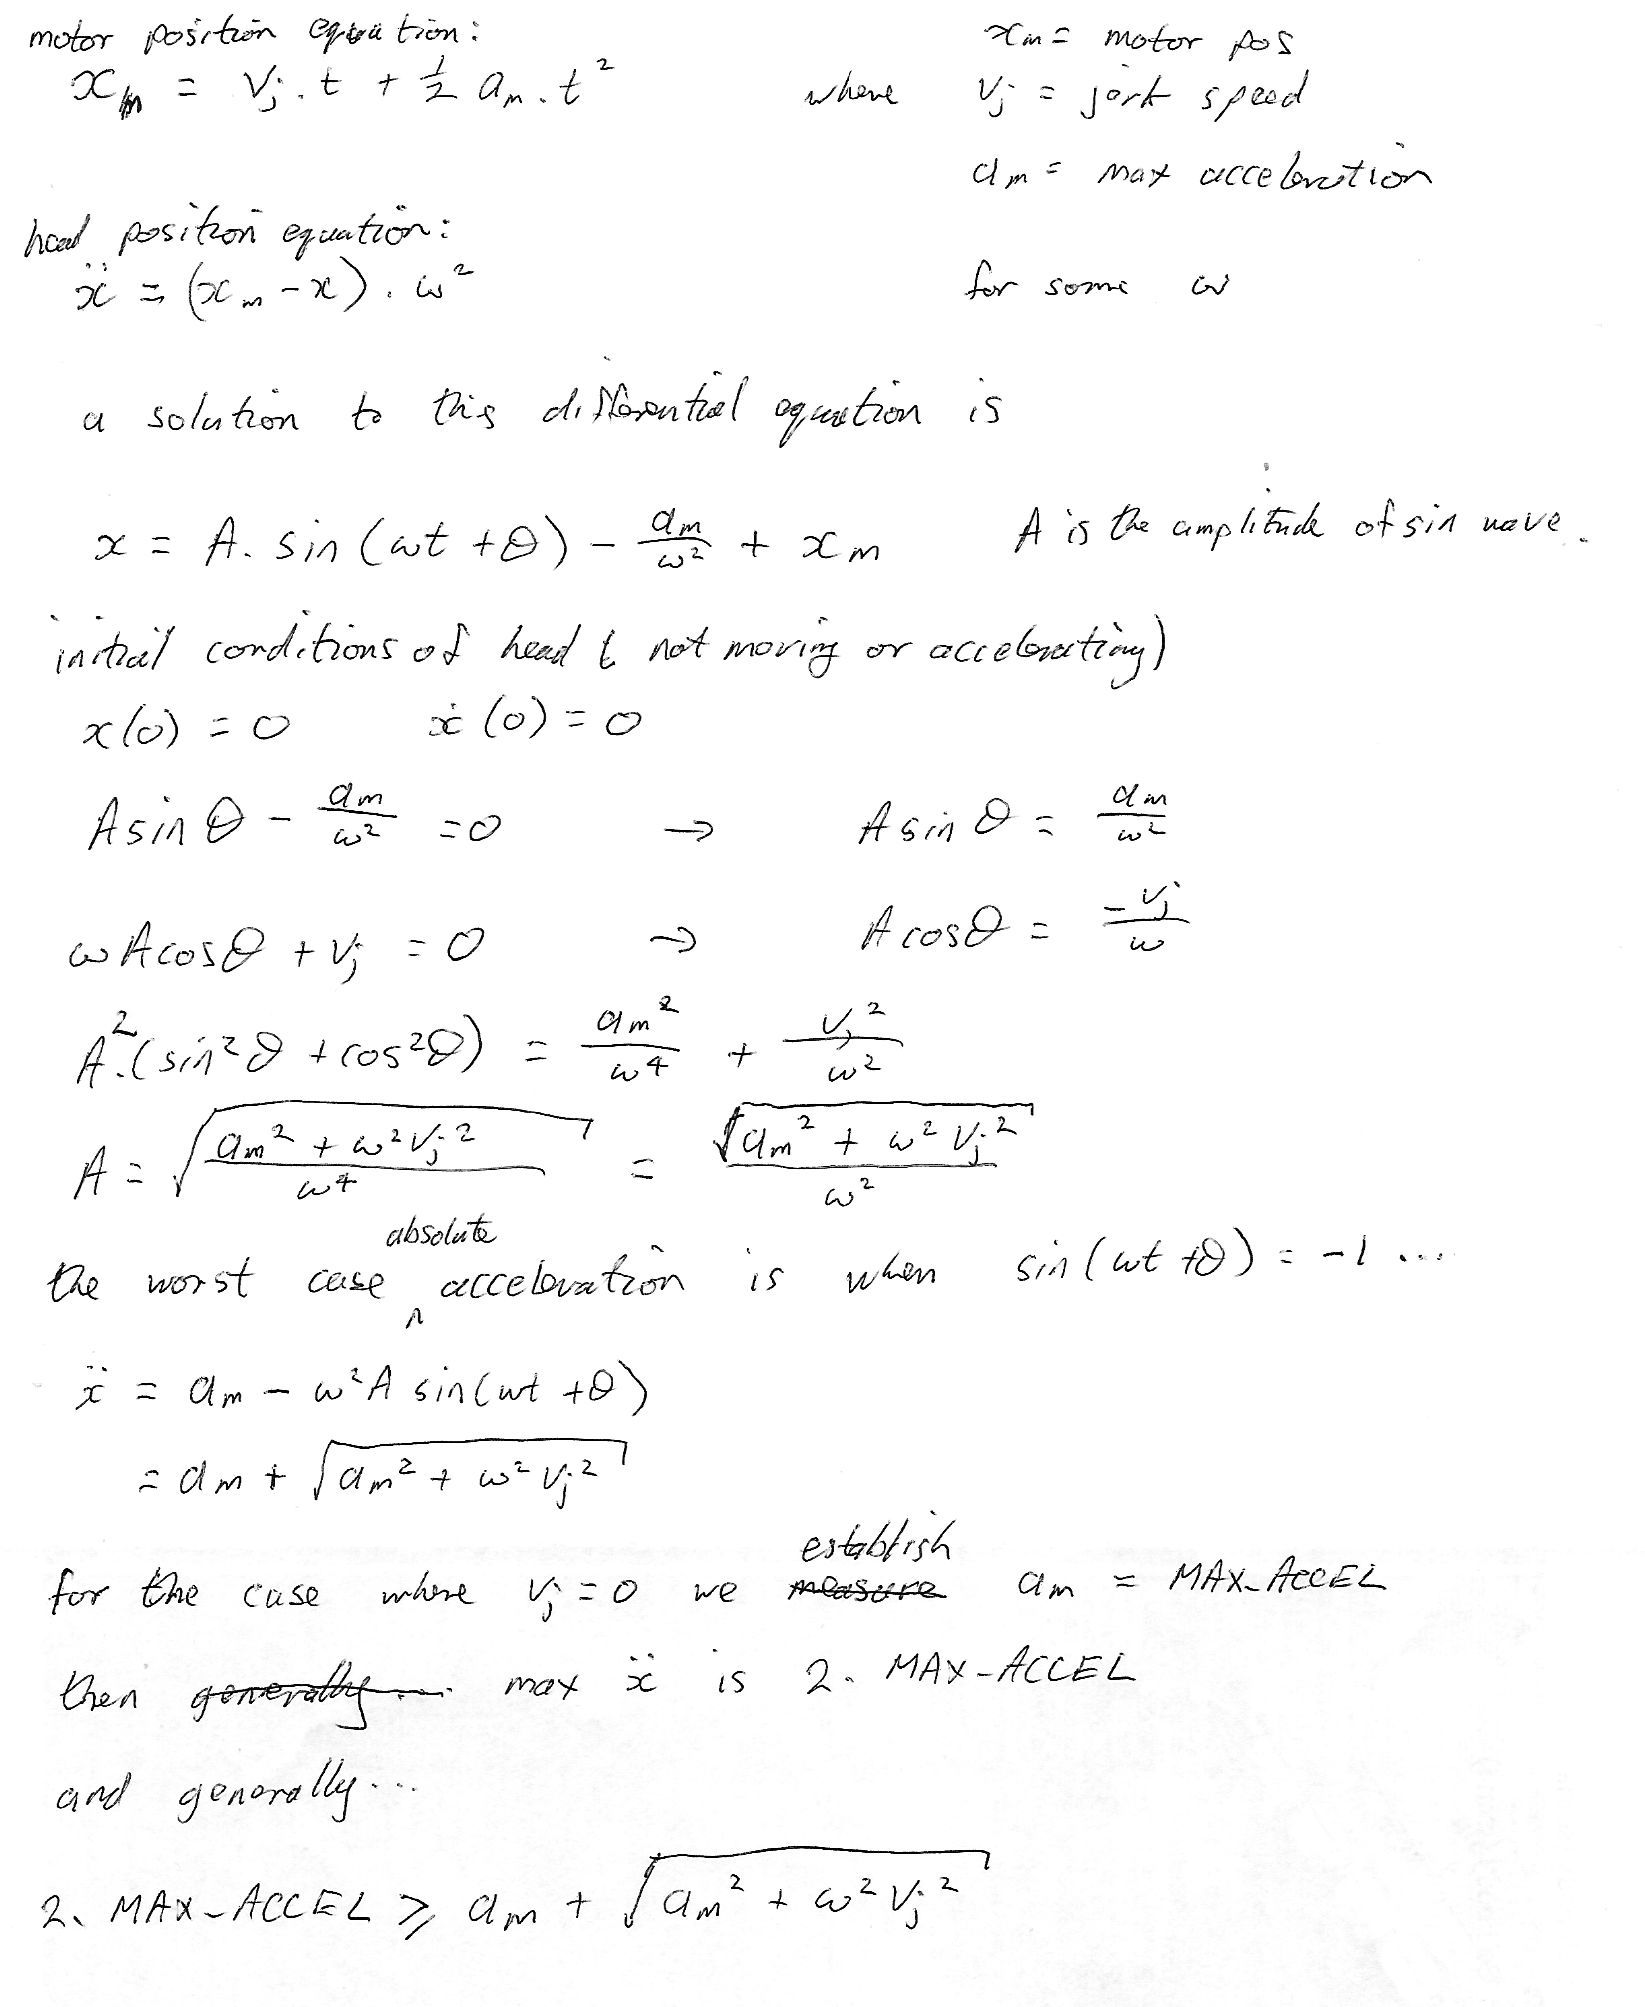 motor position equation: xm = motor pos
xm = vj . t + 1/2 am . t² where vj = jerk speed
am = max acceleration
head position equation:
ẍ = (xm - x) . ω² for some ω
a solution to this differential equation is
x = A. sin (ωt + θ) - am/ω² + xm A is the amplitude of sin wave.
initial conditions of head ( not moving or accelerating)
x(0) = 0 ẋ(0) = 0
A sin θ - am/ω² = 0 → A sin θ = am/ω²
ω A cos θ + vj = 0 → A cos θ = -vj/ω
A².(sin²θ + cos²θ) = am²/ω⁴ + vj²/ω²
A = √((am² + ω²vj²)/ω⁴) = √(am² + ω² vj²)/ω²
the worst case absolute acceleration is when sin(ωt + θ) = -1 ...
ẍ = am - ω²A sin(ωt + θ)
= am + √(am² + ω² vj²)
for the case where vj = 0 we measure establish am = MAX-ACCEL
then generally ... max ẍ is 2. MAX-ACCEL
and generally...
2. MAX-ACCEL ≥ am + √(am² + ω² vj²)